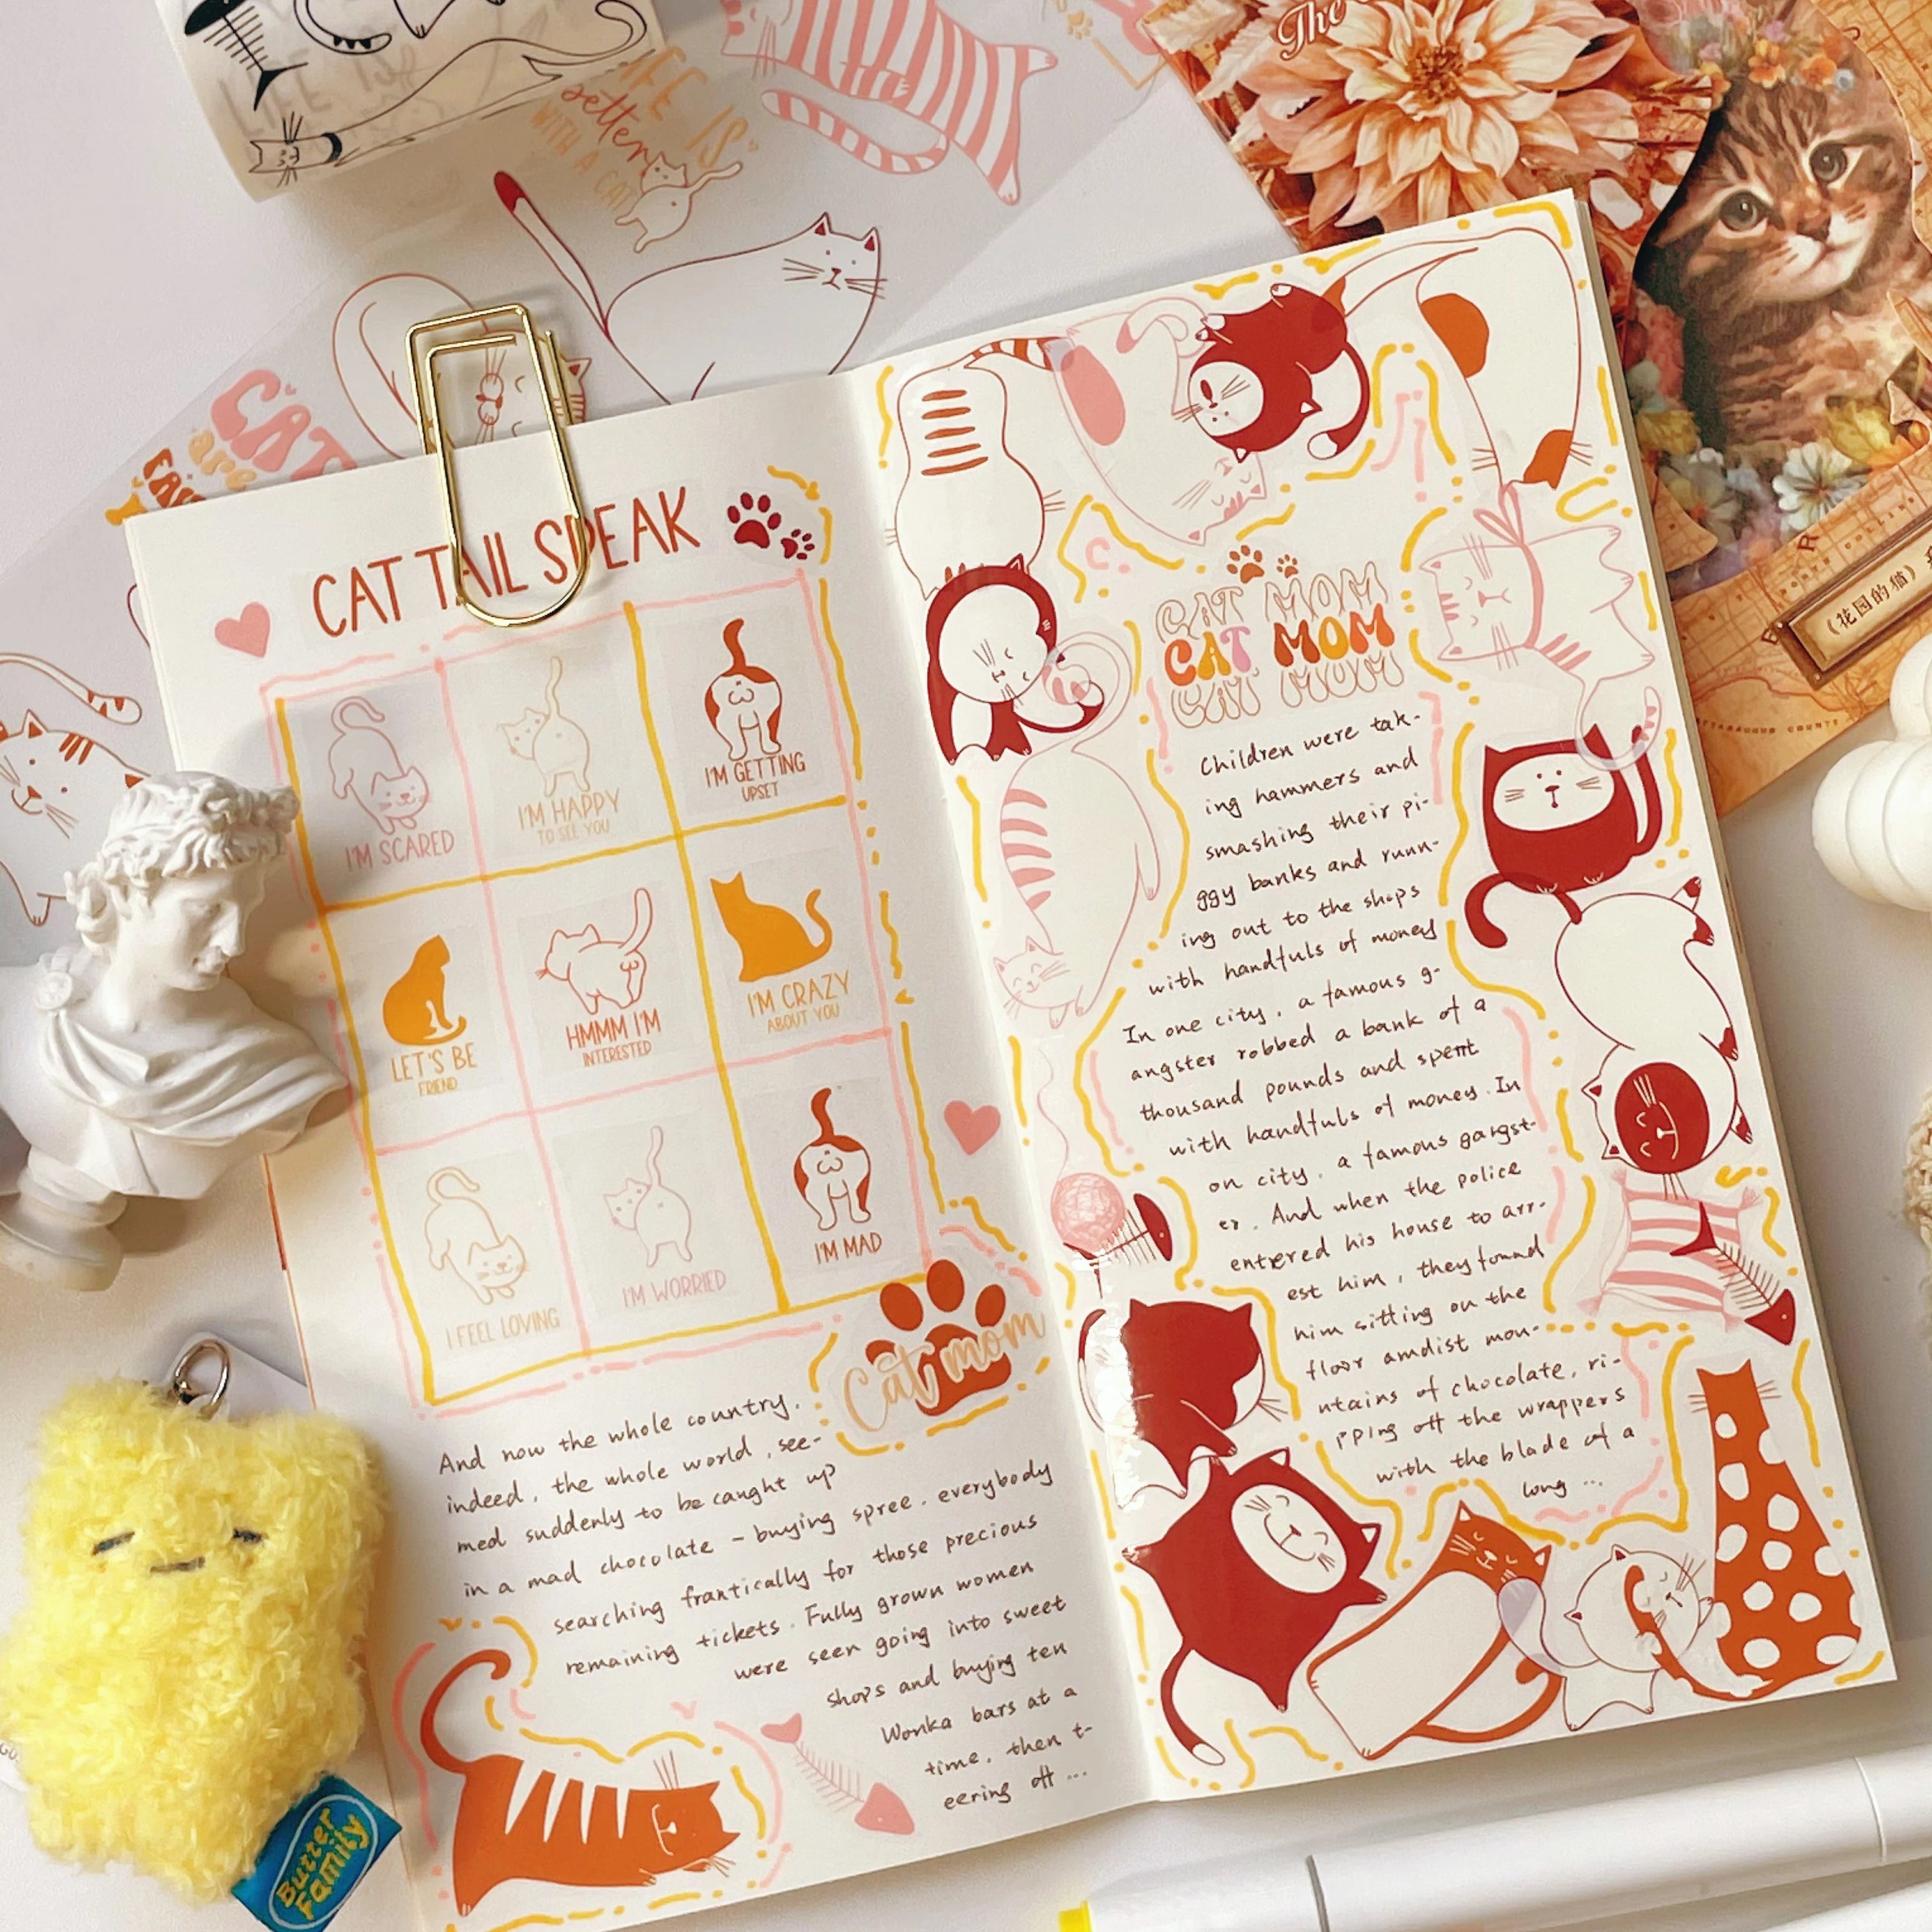 LIFE IS
LIFE IS
better
WITH A CAT
The
CAT
are
《花园的猫》
CAT TAIL SPEAK
I'M SCARED
I'M HAPPY
TO SEE YOU
I'M GETTING
UPSET
LET'S BE
FRIEND
HMMM I'M
INTERESTED
I'M CRAZY
ABOUT YOU
I FEEL LOVING
I'M WORRIED
I'M MAD
Cat mom
And now the whole country,
indeed, the whole world, see-
med suddenly to be caught up
in a mad chocolate - buying spree. everybody
searching frantically for those precious
remaining tickets. Fully grown women
were seen going into sweet
shops and buying ten
Wonka bars at a
time. then t-
eering off ...
CAT MOM
CAT MOM
CAT MOM
Children were tak-
ing hammers and
smashing their pi-
ggy banks and runn-
ing out to the shops
with handfuls of money
In one city, a famous g-
angster robbed a bank of a
thousand pounds and spent
with handfuls of money. In
on city, a famous gangst-
er. And when the police
entered his house to arr-
est him, they found
him sitting on the
floor amdist mou-
ntains of chocolate, ri-
pping off the wrappers
with the blade of a
long ...
Butter
Family